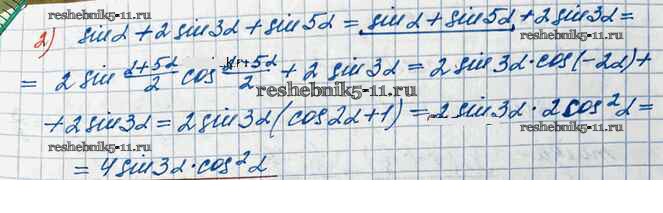 reshebnik5-11.ru
2) sinα + 2 sin3α + sin5α = sinα + sin5α + 2 sin3α =
= 2 sin (α+5α)/2 cos (α+5α)/2 + 2 sin3α = 2 sin3α · cos(-2α) +
reshebnik5-11.ru
+ 2 sin3α = 2 sin3α (cos2α + 1) = 2 sin3α · 2 cos²α =
reshebnik5-11.ru reshebnik5-11.ru
= 4 sin3α · cos²α